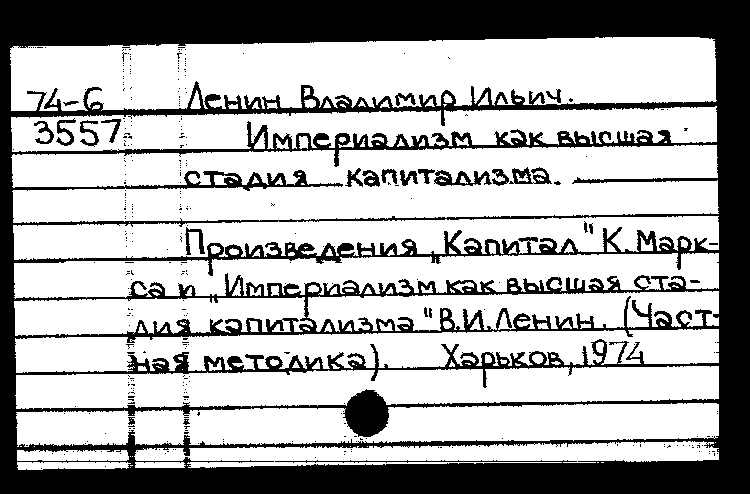 74-6 Ленин Владимир Ильич.
3557 Империализм как высшая
стадия капитализма.
Произведения „Капитал" К. Марк-
са и „Империализм как высшая ста-
дия капитализма" В.И. Ленин. (Част-
ная методика). Харьков, 1974